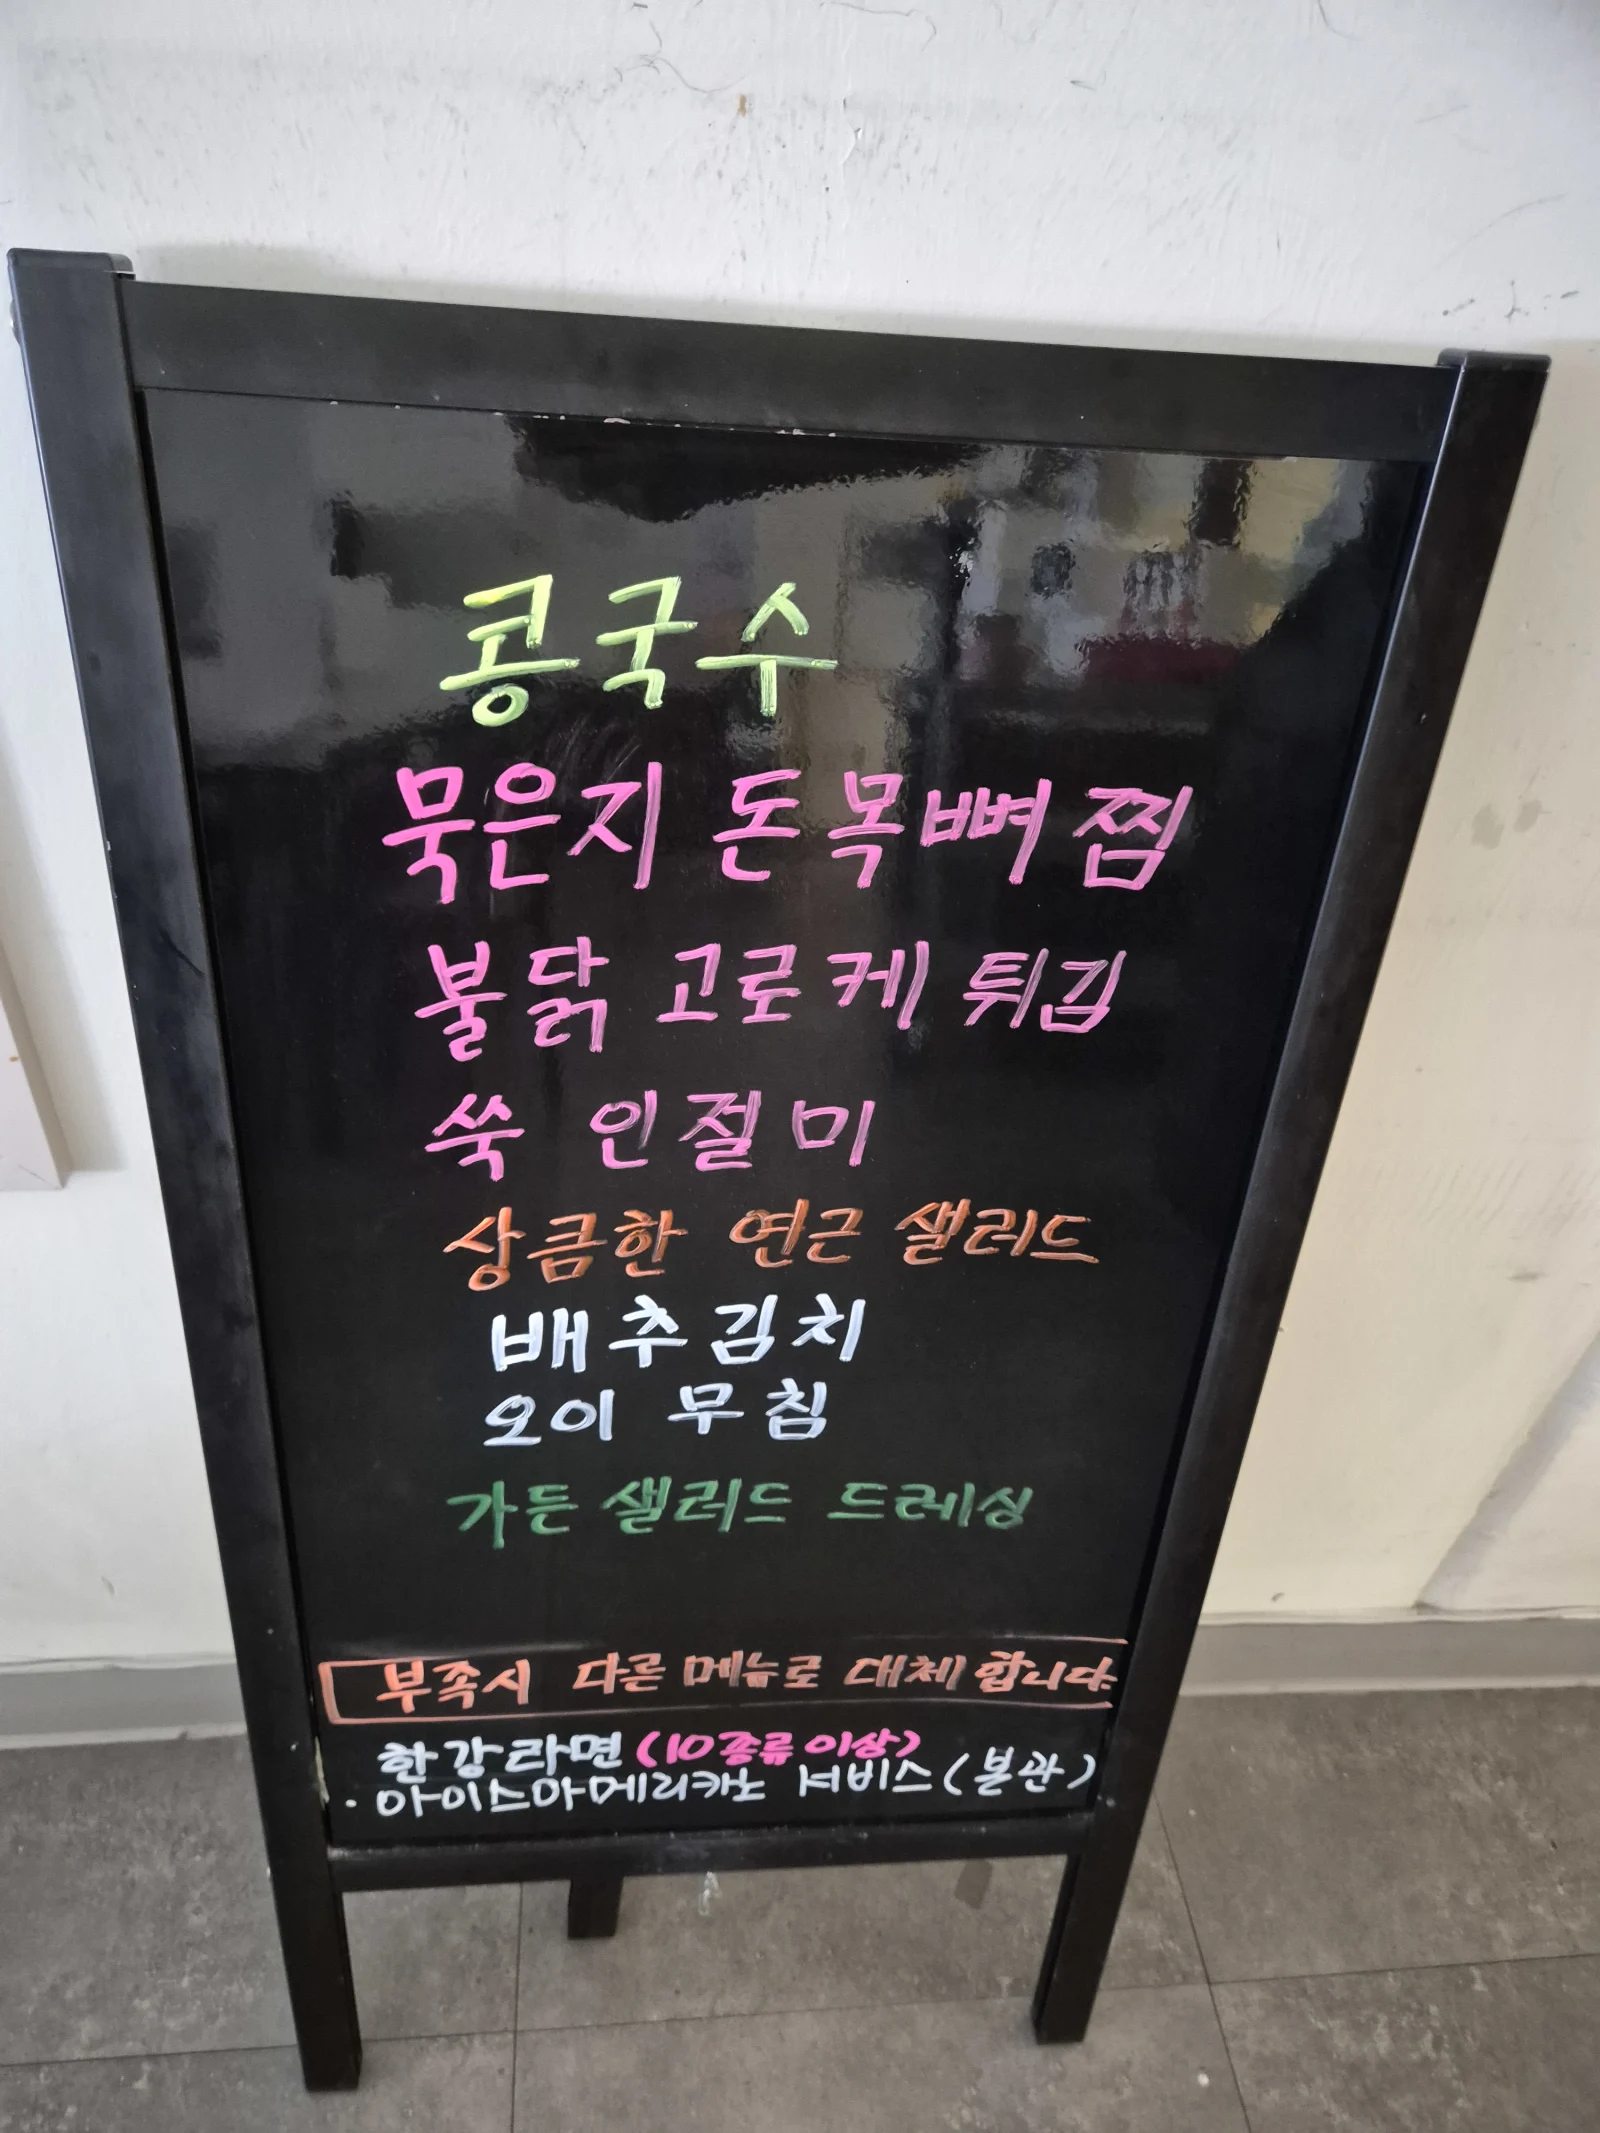 콩국수
묵은지 돈목뼈찜
불닭 고로케 튀김
쑥 인절미
상큼한 연근 샐러드
배추김치
오이 무침
가든 샐러드 드레싱
부족시 다른 메뉴로 대체 합니다.
한강라면 (10종류 이상)
· 아이스아메리카노 서비스 (본관)